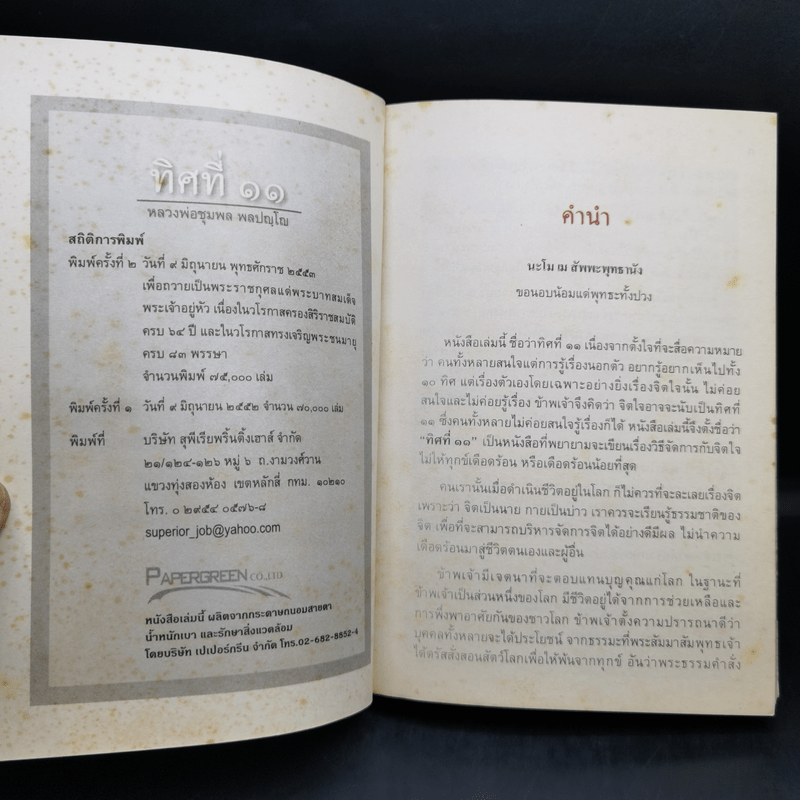 ทิศที่ ๑๑
หลวงพ่อชุมพล พลปญฺโญ
สถิติการพิมพ์
พิมพ์ครั้งที่ ๒ วันที่ ๙ มิถุนายน พุทธศักราช ๒๕๕๓
เพื่อถวายเป็นพระราชกุศลแด่พระบาทสมเด็จ
พระเจ้าอยู่หัว เนื่องในวโรกาสครองสิริราชสมบัติ
ครบ ๖๔ ปี และในวโรกาสทรงเจริญพระชนมายุ
ครบ ๘๓ พรรษา
จำนวนพิมพ์ ๗๕,๐๐๐ เล่ม
พิมพ์ครั้งที่ ๑ วันที่ ๙ มิถุนายน ๒๕๕๒ จำนวน ๗๐,๐๐๐ เล่ม
พิมพ์ที่ บริษัท สุพีเรียพริ้นติ้งเฮาส์ จำกัด
๒๑/๑๒๔-๑๒๖ หมู่ ๖ ถ.งามวงศ์วาน
แขวงทุ่งสองห้อง เขตหลักสี่ กทม. ๑๐๒๑๐
โทร. ๐ ๒๙๕๔ ๐๕๗๖-๘
superior_job@yahoo.com
PAPERGREEN CO.,LTD.
หนังสือเล่มนี้ ผลิตจากกระดาษถนอมสายตา
น้ำหนักเบา และรักษาสิ่งแวดล้อม
โดยบริษัท เปเปอร์กรีน จำกัด โทร.02-682-8852-4
คำนำ
นะโม เม สัพพะพุทธานัง
ขอนอบน้อมแด่พุทธะทั้งปวง
หนังสือเล่มนี้ ชื่อว่าทิศที่ ๑๑ เนื่องจากตั้งใจที่จะสื่อความหมาย
ว่า คนทั้งหลายสนใจแต่การรู้เรื่องนอกตัว อยากรู้อยากเห็นไปทั้ง
๑๐ ทิศ แต่เรื่องตัวเองโดยเฉพาะอย่างยิ่งเรื่องจิตใจนั้น ไม่ค่อย
สนใจและไม่ค่อยรู้เรื่อง ข้าพเจ้าจึงคิดว่า จิตใจอาจจะนับเป็นทิศที่
๑๑ ซึ่งคนทั้งหลายไม่ค่อยสนใจรู้เรื่องก็ได้ หนังสือเล่มนี้จึงตั้งชื่อว่า
“ทิศที่ ๑๑” เป็นหนังสือที่พยายามจะเขียนเรื่องวิธีจัดการกับจิตใจ
ไม่ให้ทุกข์เดือดร้อน หรือเดือดร้อนน้อยที่สุด
คนเรานั้นเมื่อดำเนินชีวิตอยู่ในโลก ก็ไม่ควรที่จะละเลยเรื่องจิต
เพราะว่า จิตเป็นนาย กายเป็นบ่าว เราควรจะเรียนรู้ธรรมชาติของ
จิต เพื่อที่จะสามารถบริหารจัดการจิตได้อย่างดีมีผล ไม่นำความ
เดือดร้อนมาสู่ชีวิตตนเองและผู้อื่น
ข้าพเจ้ามีเจตนาที่จะตอบแทนบุญคุณแก่โลก ในฐานะที่
ข้าพเจ้าเป็นส่วนหนึ่งของโลก มีชีวิตอยู่ได้จากการช่วยเหลือและ
การพึ่งพาอาศัยกันของชาวโลก ข้าพเจ้าตั้งความปรารถนาดีว่า
บุคคลทั้งหลายจะได้ประโยชน์ จากธรรมะที่พระสัมมาสัมพุทธเจ้า
ได้ตรัสสั่งสอนสัตว์โลกเพื่อให้พ้นจากทุกข์ อันว่าพระธรรมคำสั่ง